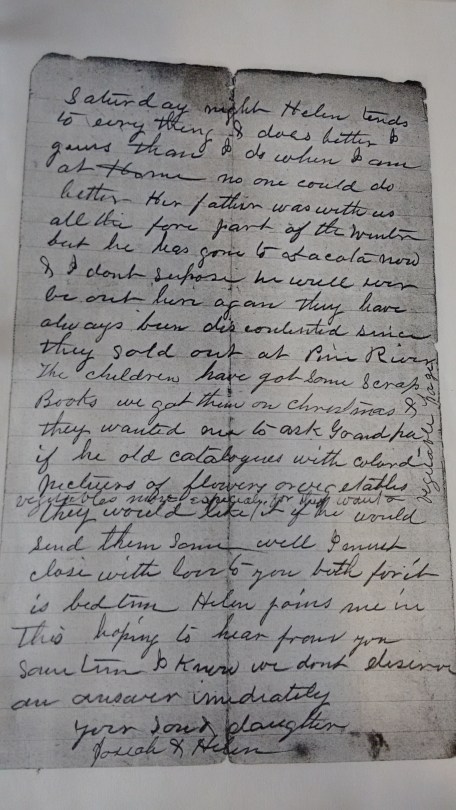 Saturday night Helen tends
to evry thing & does better I
guess than I do when I am
at Home no one could do
better Her father was with us
all the fore part of the Winter
but he has gone to Lacota now
& I dont supose he will ever
be out here again they have
always been discontented since
they sold out at Pine River
The children have got some Scrap
Books we got them on christmas &
they wanted me to ask Grandpa
if he old catalogues with colord
pectures of flowers or vegetables
vegetables more especialy for they want a
vegitable page
they would like it if he would
send them some well I must
close with love to you both for it
is bedtime Helen joins me in
this hoping to hear from you
some time I know we dont deserve
an answer imediately
your son & daughter
Josiah & Helen